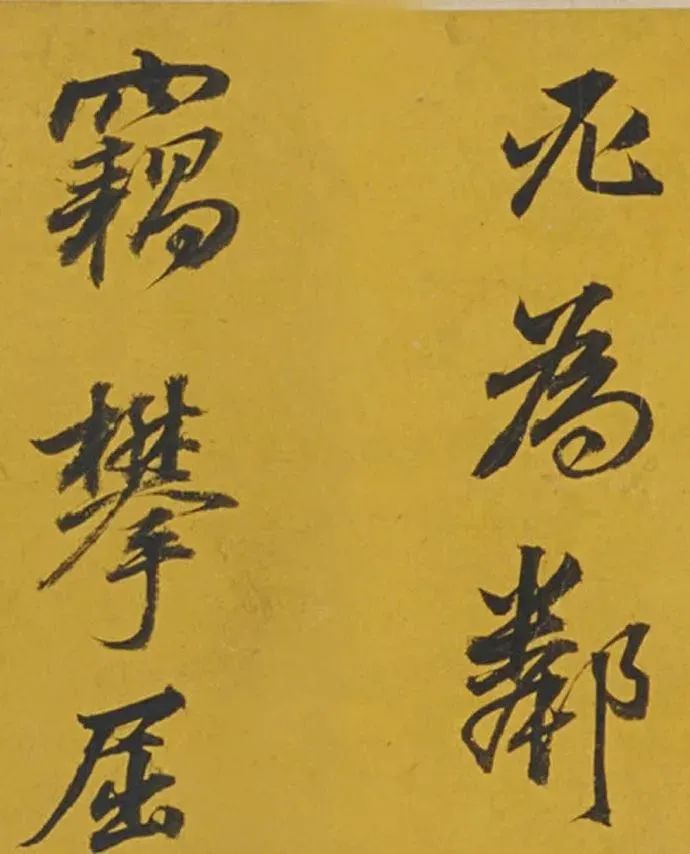 必為鄰
竊攀屈